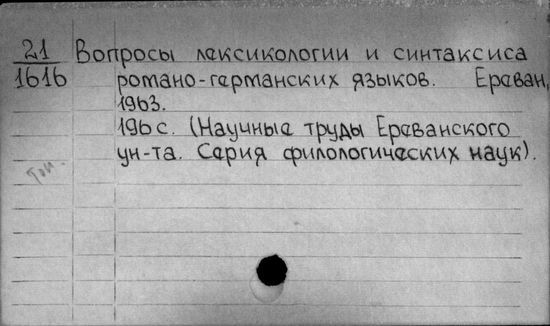 21 Вопросы лексикологии и синтаксиса
1616 романо-германских языков. Ереван,
1963.
196 с. (Научные труды Ереванского
ун-та. Серия филологических наук).